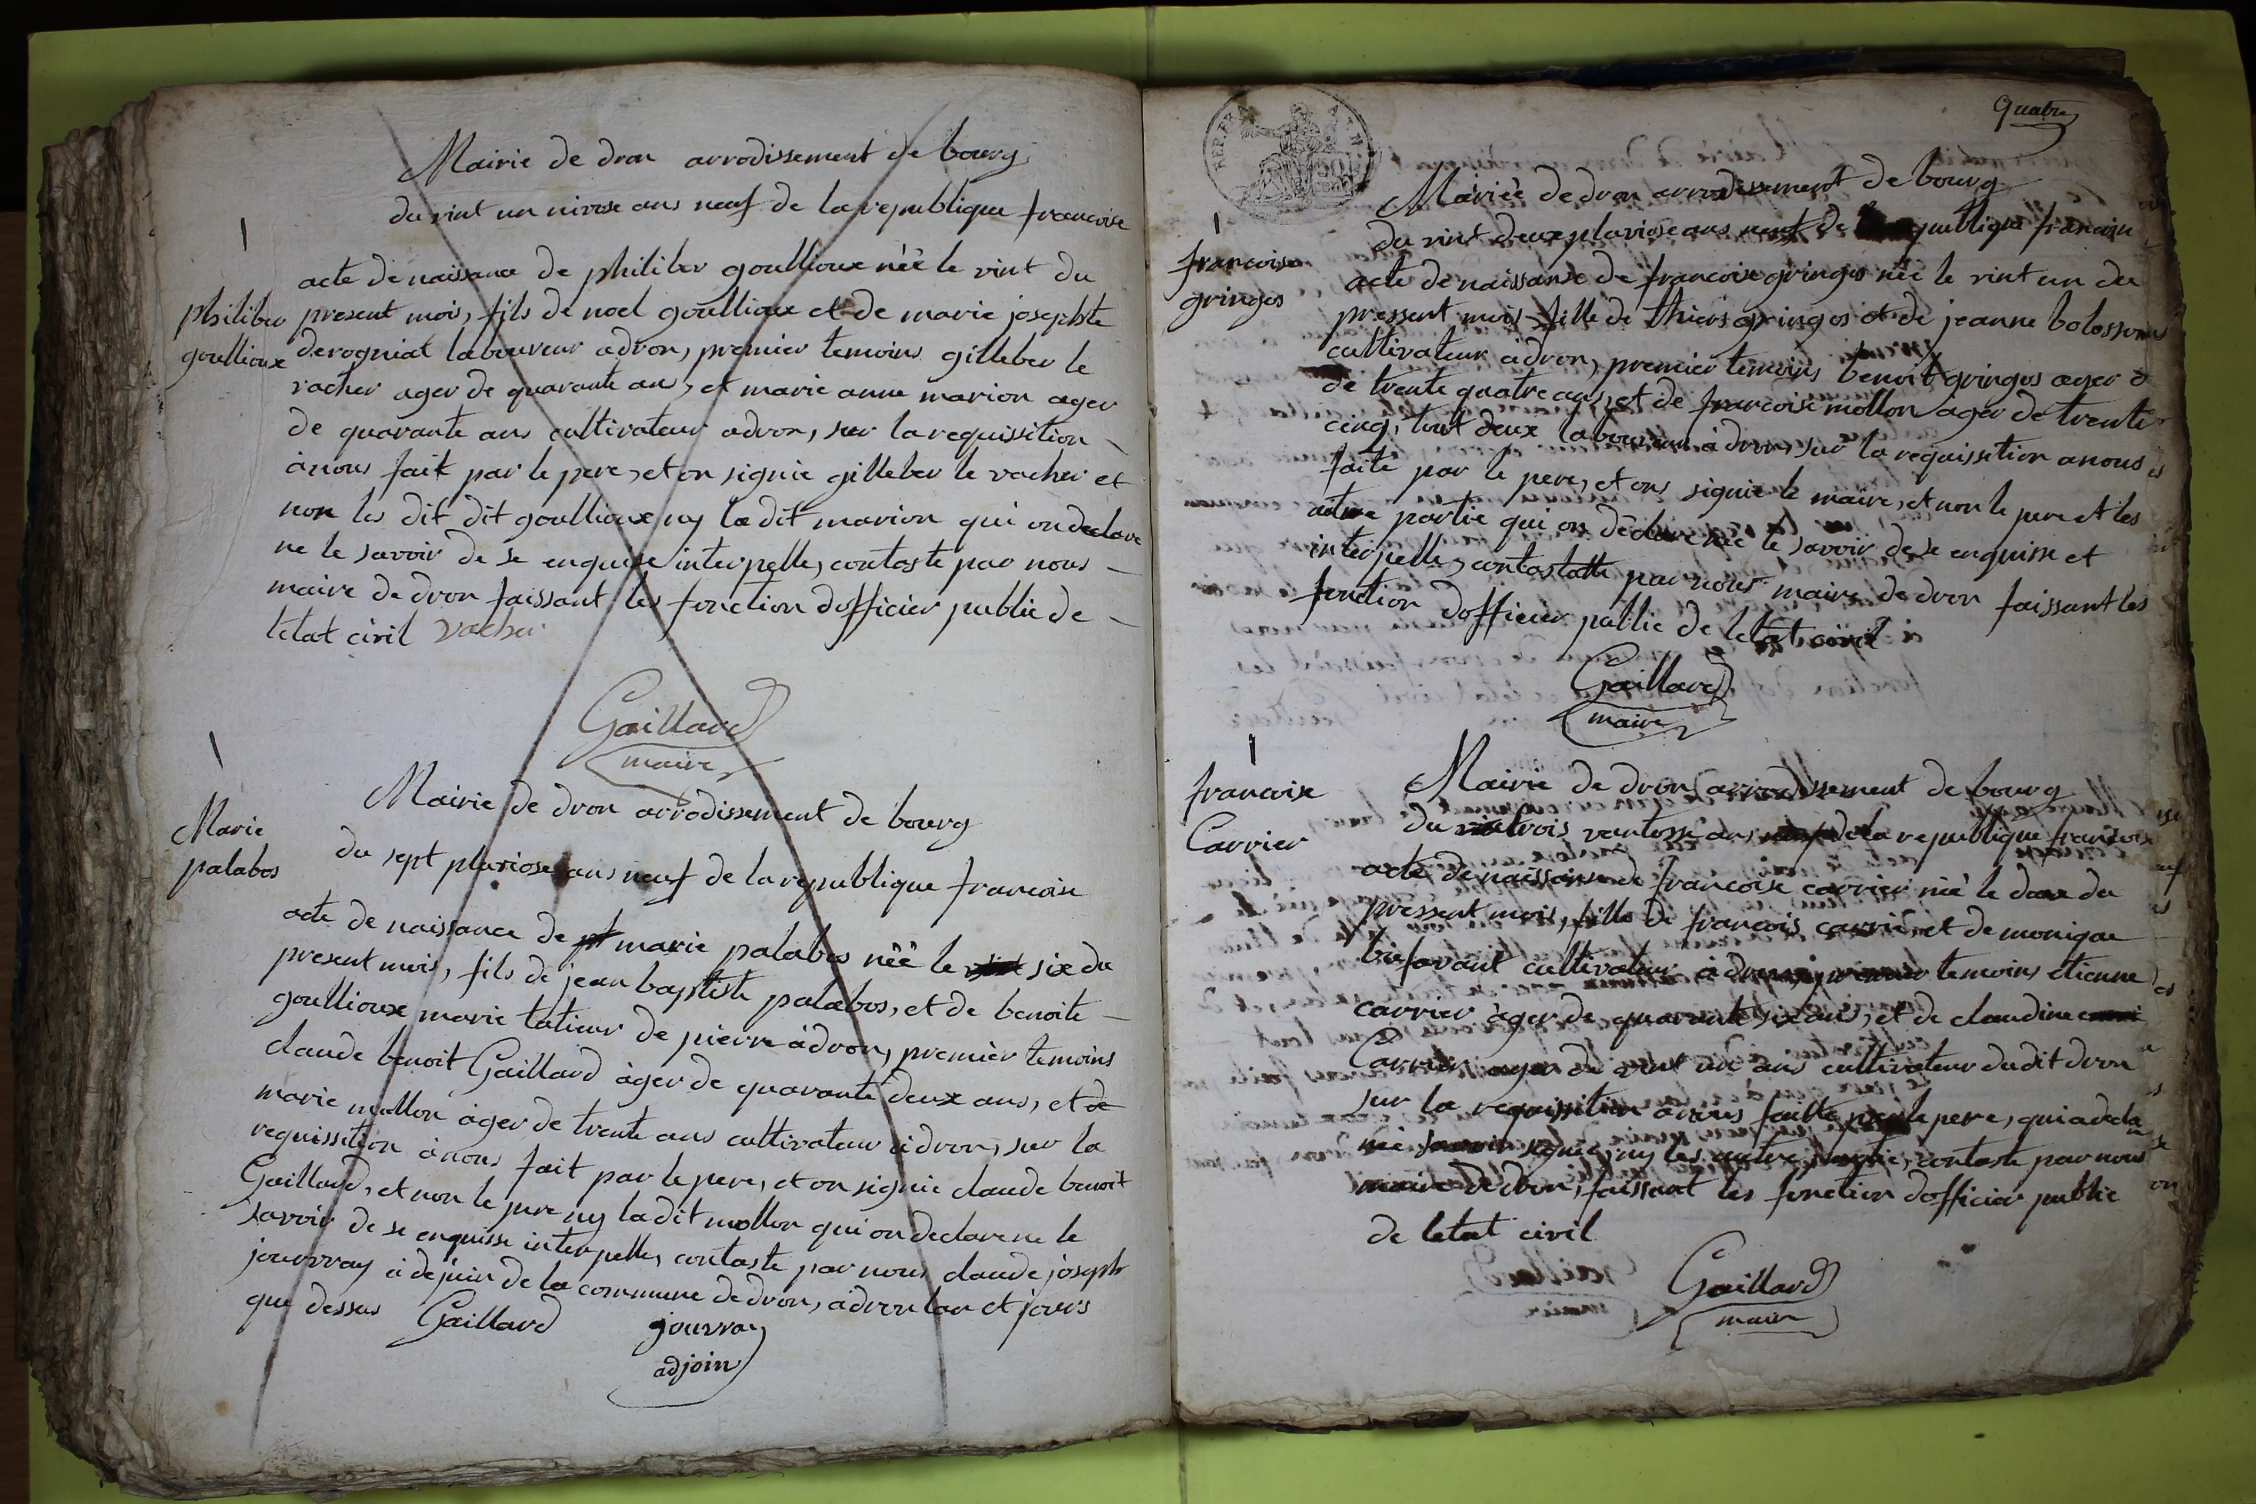 Mairie de dron arrodissement de bourg
du vint un nivose ans neuf de la republique francoise
1
philiber
goullioux
acte de naissance de philiber goullioux néé le vint du
present mois, fils de noel goullioux et de marie josephte
derogniat laboureur a dron, premier temoins gilleber le
vacher ager de quarante ans, et marie anne marion ager
de quarante ans cultivateur a dron, sur la requissition
à nous fait par le pere, et on signié gilleber le vacher et
non les dit dit goullioux ny la dit marion qui on declare
ne le savoir de se enquise interpelle, contaste par nous
maire de dron faissant les fonction dofficier public de
letat civil vacher
Gaillard
maire
1
Marie
palabos
Mairie de dron arrodissement de bourg
du sept pluviose ans neuf de la republique francoise
acte de naissance de marie palabos néé le six du
present mois, fils de jean baptiste palabos, et de benoite
goullioux marie tatieur de pierre à dron, premier temoins
claude benoit Gaillard àger de quarante deux ans, et de
marie mollon àger de trente ans cultivateur à dron, sur la
requissition à nous fait par le pere, et on signié claude benoit
Gaillard, et non le pere ny ladit mollon qui on declare ne le
savoir de se enquisse interpelle, contaste par nous claude joseph
jouvray à dejoin de la commune de dron, à dron lan et jours
que dessus Gaillard jouvray
adjoin
quatre
1
francoise
gringos
Mairièe de dron arrodissement de bourg
du vint deux pluviose ans neuf de republique francoise
acte de naissanse de francoise gringos néé le vint un du
pressent mois fille de thiers gringos et de jeanne bolosson
cultivateur à dron, premier temoins benoit gringos ager
de trente quatre ans, et de francoise mollon àger de trente
cinq, tout deux laboureur à dron, sur la requissition a nous
faite par le pere, et ons signié le maire, et non le pere et les
autre partie qui on déclare née le savoir de se enquisse et
interpelle, contastatte par nous maire de dron faissant les
fonction dofficier public de letat civil
Gaillard
maire
1
francoise
Carrier
Mairie de dron arrodissement de bourg
du trois vantosse ans neuf de la republique francois
acte de naissanse de francoise carrier niéé le deux du
pressent mois, fille de francois carrié, et de monique
biefavant cultivateur à dron, premier temoins etienne
carrier àger de quarante six ans, et de claudine
Carrier ager de ans cultivateur du dit dron
sur la requissition à nous faitte par le pere, qui a decla
né savoir signié, ny les autre partie, contaste par nous
maire de dron, faissant les fonction dofficier public
de letat civil
Gaillard
maire